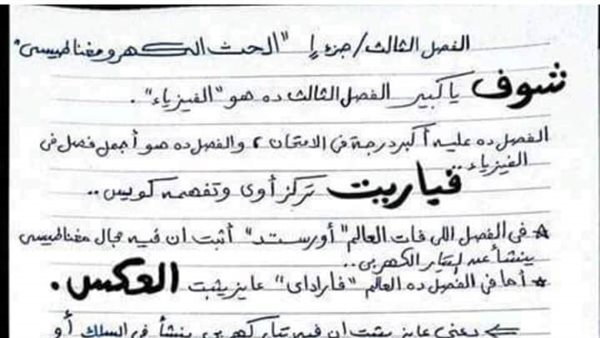 الفصل الثالث/جزء ١ "الحث الكهرومغناطيسى"
شوف يا كبير الفصل الثالث ده هو "الفيزياء".
الفصل ده عليه أكبر درجة فى الامتحان، والفصل ده هو أجمل فصل فى
الفيزياء فياريت تركز أوى وتفهمه كويس..
* فى الفصل اللى فات العالم "أورستد" أثبت ان فيه مجال مغناطيسى
ينشأ عند التيار الكهربى..
* أما فى الفصل ده العالم "فاراداى" عايز يثبت العكس.
يعنى عايز يثبت ان فيه تيار كهربى ينشأ فى السلك أو